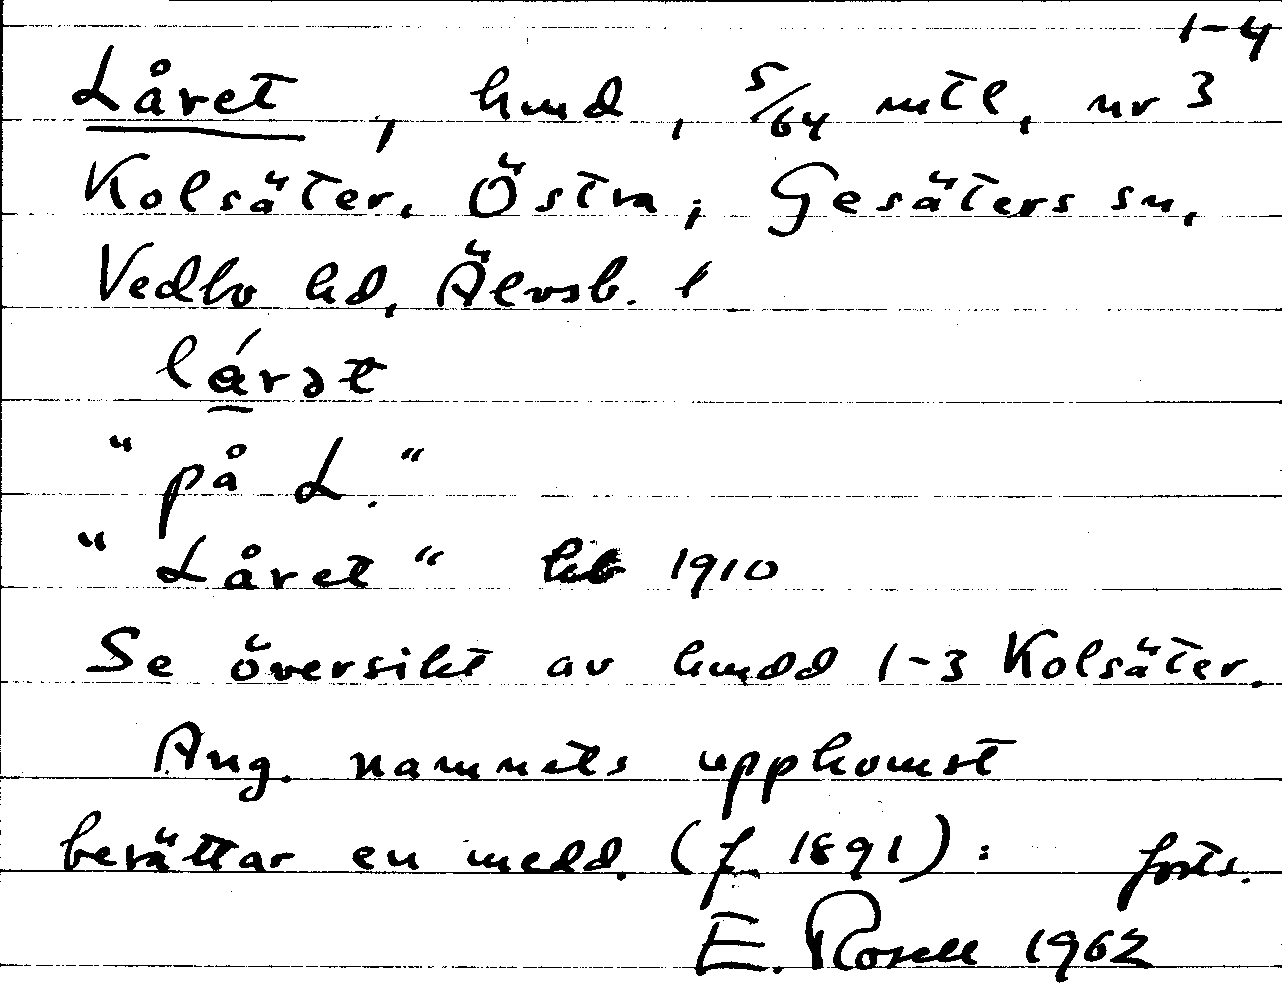 1-4
Låret, hmd, 5/64 mtl, nr 3
Kolsäter, Östra, Gesäters sn,
Vedbo hd, Älvsb. l
lárət
"på L."
"Låret" 1910
Se översikt av hmdd 1-3 Kolsäter.
Ang. namnets uppkomst
berättar en medd. (f. 1891): forts.
E. Rosell 1962